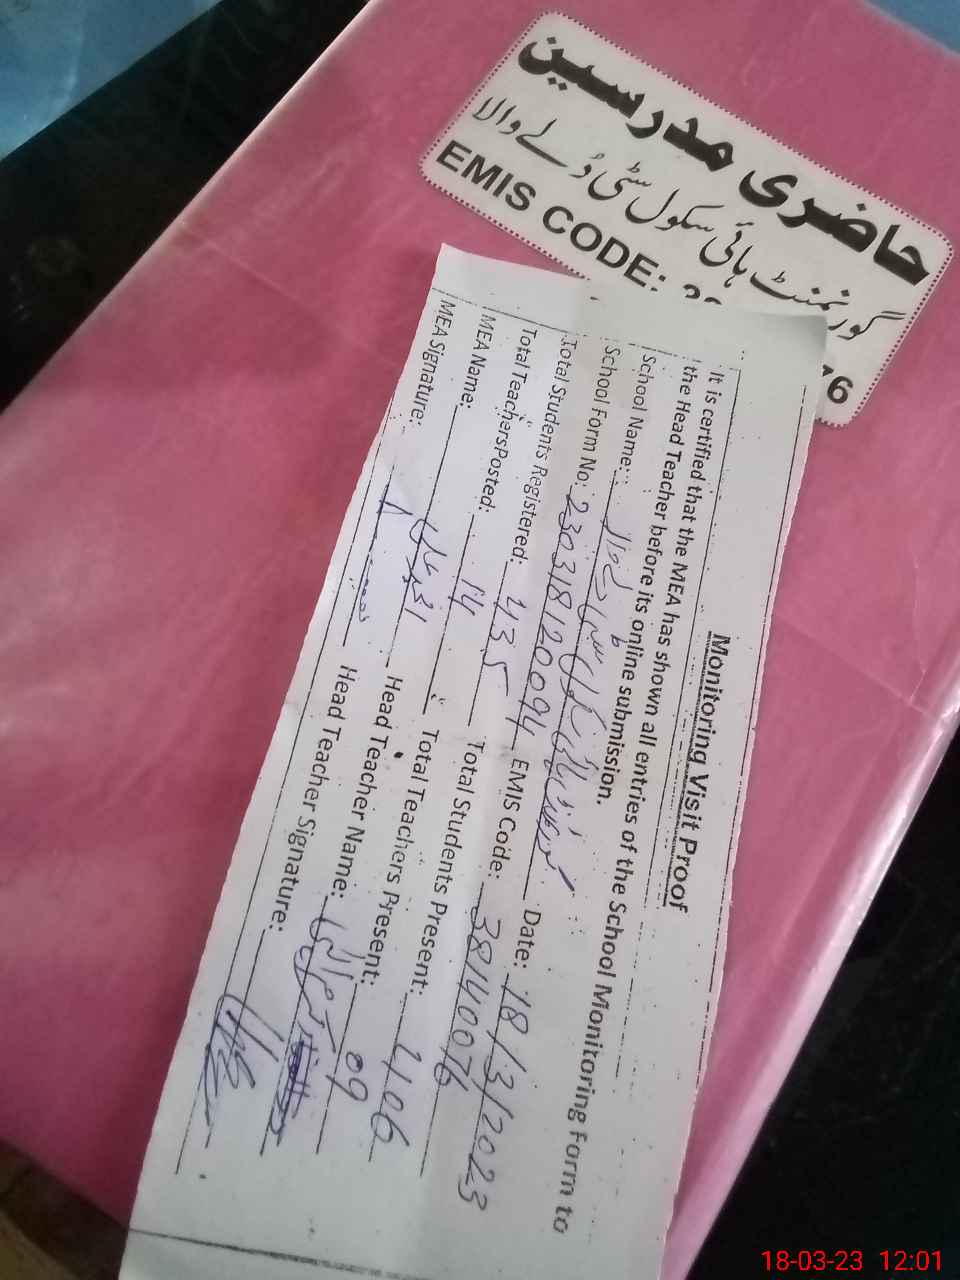 حاضری مدرسین
گورنمنٹ ہائی سکول سٹی ڈلے والا
EMIS CODE: 76
Monitoring Visit Proof
It is certified that the MEA has shown all entries of the School Monitoring Form to
the Head Teacher before its online submission.
School Name: گورنمنٹ ہائی سکول سٹی ڈلے والا
School Form No: 230318120094 Date: 18/3/2023
Total Students Registered: 435 EMIS Code: 38140076
Total Teachers Posted: 14 Total Students Present: 406
MEA Name: Total Teachers Present: 09
MEA Signature: Head Teacher Name:
Head Teacher Signature:
18-03-23 12:01